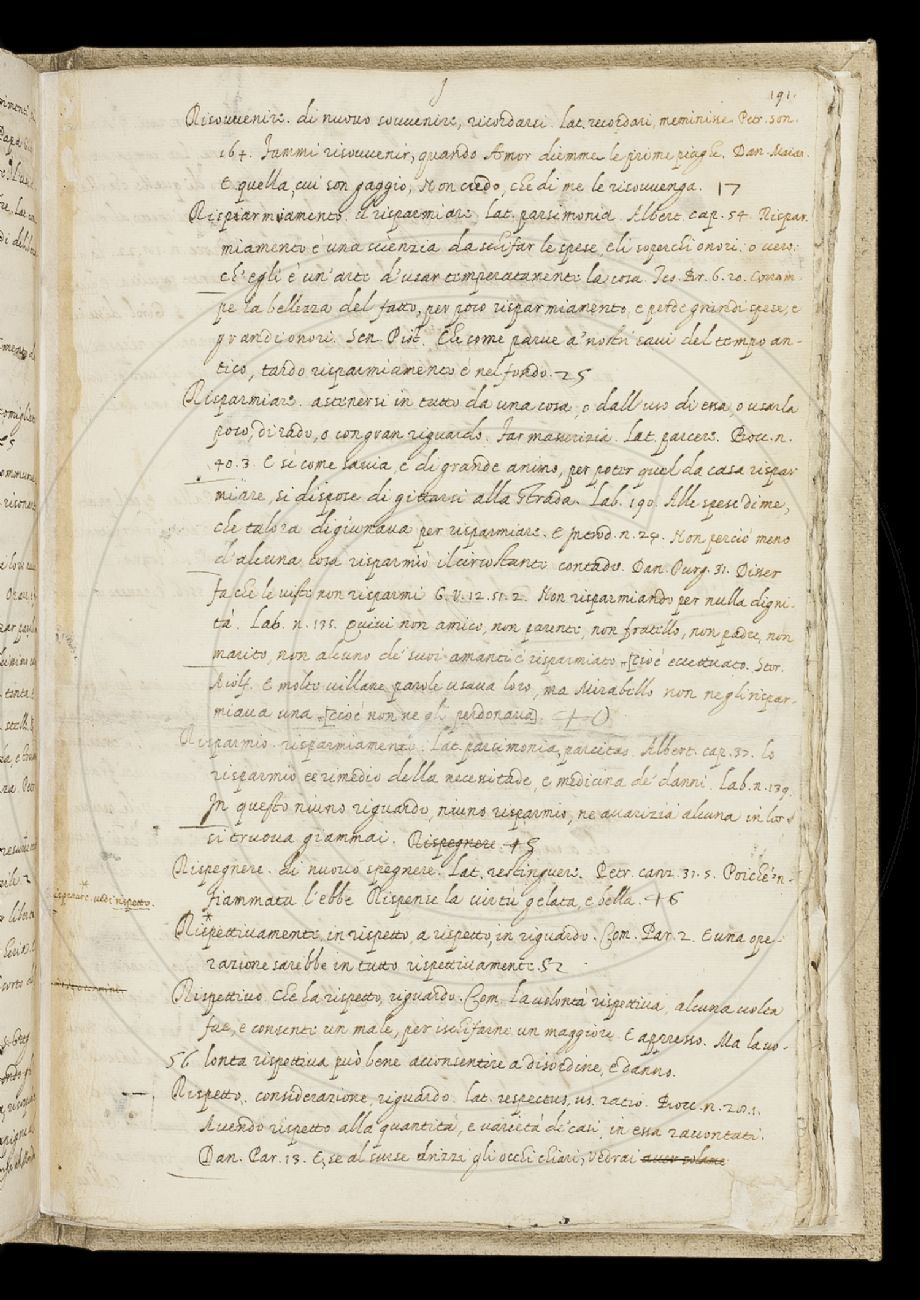 191.
Risouuenire. di nuouo souuenire, ricordarsi. Lat. recordari, meminisse. Petr. son.
164. Fammi risouuenir, quando Amor diemme le prime piaghe. Dan. Maian.
E quella, cui son gaggio, Non credo, che di me le risouuenga. 17
Risparmiamento. il risparmiare. Lat. parsimonia. Albert. cap. 54. Rispar
miamento è una scienzia da schifar le spese, e li soperchi onori: o uero:
ch'egli è un'arte d'usar temperatamente la cosa. Teo. Br. 6. 20. Corrom-
pe la bellezza del fatto, per poco risparmiamento, e perde grandi spese, e
grandi onori. Sen. Pist. Che come parue a' nostri saui del tempo an-
tico, tardo risparmiamento è nel fondo. 25
Risparmiare. astenersi in tutto da una cosa, o dall'uso di essa, o usarla
poco, di rado, o con gran riguardo. Far masserizia. Lat. parcere. Bocc. n.
40. 3. E sì come sauia, e di grande animo, per poter quel da casa rispar
miare, si dispose di gittarsi alla strada. Lab. 190. Alle spese di me,
che talora digiunaua per risparmiare. E n. 24. Non perciò meno
d'alcuna cosa risparmiò il circostante contado. Dan. Purg. 31. Disser
fa che le uiste non risparmi. G. V. 12. 51. 2. Non risparmiando per nulla digni-
tà. Lab. n. 135. Quiui non amico, non parente, non fratello, non padre, non
marito, non alcuno de' suoi amanti è risparmiato [cioè eccettuato. Stor.
Aiolf. E molto uillane parole usaua loro, ma Mirabello non negli rispar-
miaua una [cioè non ne gli perdonaua]. 40
Risparmio. risparmiamento. Lat. parsimonia, parcitas. Albert. cap. 37. Lo
risparmio è rimedio della necessitade, e medicina de' danni. Lab. n. 139.
In questo niuno riguardo, niuno risparmio, ne auarizia alcuna in lor
si truoua giammai. Rispegnere. 45
Rispegnere. di nuouo spegnere. Lat. restinguere. Petr. canz. 31. 5. Poiche'n-
fiammata l'ebbe Rispense la uirtù gelata, e bella. 46
Rispettiuamente. in rispetto, a rispetto, in riguardo. Com. Par. 2. E una ope-
razione sarebbe in tutto rispettiuamente. 52
Rispettiuo. Che ha rispetto, riguardo. Com. La uolontà rispettiua, alcuna uolta
fue, e consente un male, per ischifarne un maggiore. E appresso. Ma la uo-
56 lontà rispettiua può bene acconsentire a disordine, e danno.
Rispetto. considerazione, riguardo. Lat. respectus, us. ratio. Bocc. n. 20. 1.
Auendo rispetto alla quantità, e uarietà de' casi in essa raccontati.
Dan. Par. 13. E, se al surse drizzi gli occhi chiari, Vedrai auer solame